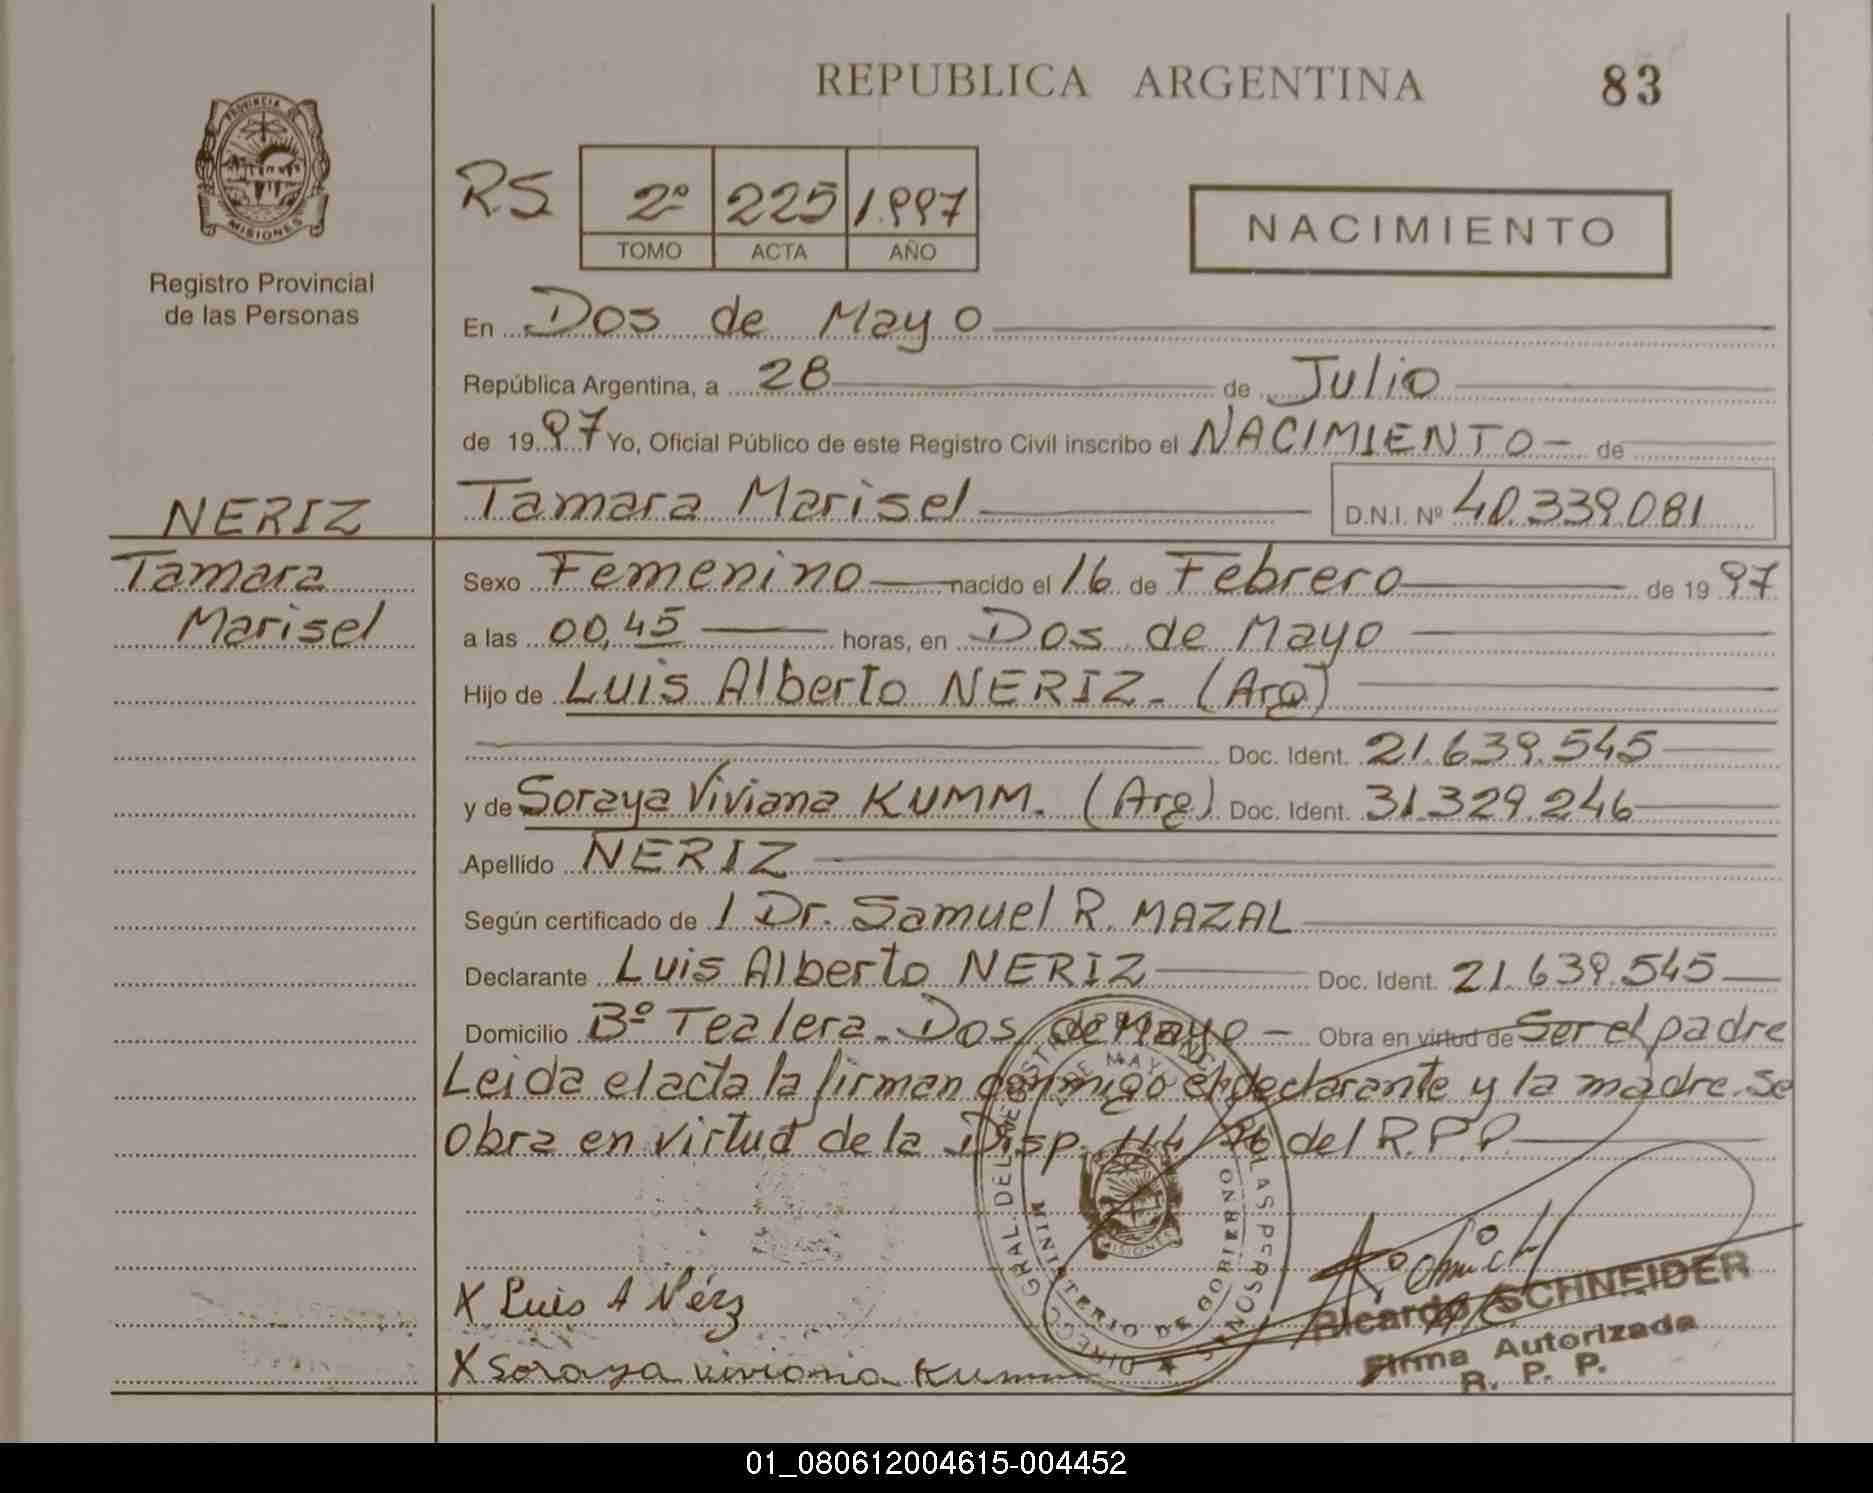 REPUBLICA ARGENTINA 83
PROVINCIA DE
MISIONES
Registro Provincial
de las Personas
RS 2º 225 1.997
TOMO ACTA AÑO
NACIMIENTO
En Dos de Mayo
República Argentina, a 28 de Julio
de 1997 Yo, Oficial Público de este Registro Civil inscribo el NACIMIENTO - de
NERIZ
Tamara Marisel D.N.I. Nº 40.339.081
Tamara
Marisel
Sexo Femenino nacido el 16 de Febrero de 1997
a las 00,45 horas, en Dos de Mayo
Hijo de Luis Alberto NERIZ. (Arg)
Doc. Ident. 21.639.545
y de Soraya Viviana KUMM. (Arg) Doc. Ident. 31.329.246
Apellido NERIZ
Según certificado de 1 Dr. Samuel R. MAZAL
Declarante Luis Alberto NERIZ Doc. Ident. 21.639.545
Domicilio Bº Tealera. Dos de Mayo - Obra en virtud de Ser el padre
Leida el acta la firman conmigo el declarante y la madre. se
obra en virtud de la Disp. 114/96 del R.P.P.
X Luis A Nériz
X Soraya viviana Kumm
DIRECC. GRAL. DEL REGISTRO PROVINCIAL DE LAS PERSONAS
MINISTERIO DE GOBIERNO
MISIONES
Ricardo SCHNEIDER
Firma Autorizada
R. P. P.
01_080612004615-004452